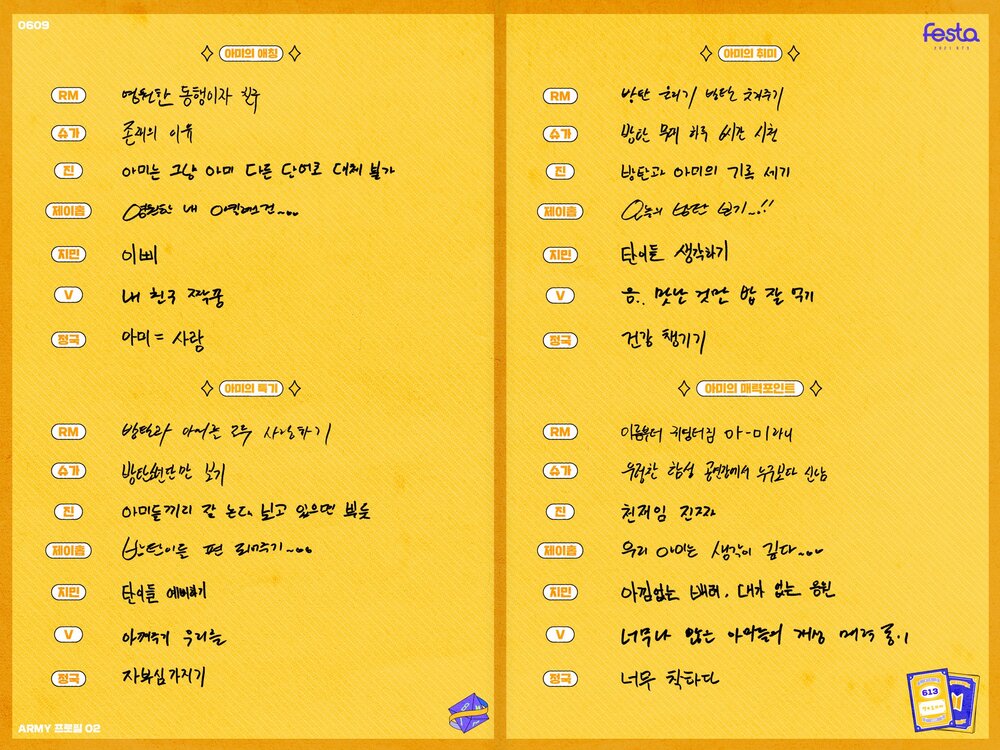 0609
festa
2021 BTS
아미의 애칭
RM 영원한 동행이자 친구
슈가 존재의 이유
진 아미는 그냥 아미 다른 단어로 대체 불가
제이홉 영원한 내
지민 이삐
V 내 친구 짝꿍
정국 아미 = 사람
아미의 취미
RM 방탄 방탄
슈가 방탄 하루 시간 시청
진 방탄과 아미의 기록 세기
제이홉 오늘의 방탄 보기~..!!
지민 탄이들 생각하기
V 음.. 맛난 것만 밥 잘 먹기
정국 건강 챙기기
아미의 특기
RM 방탄과 모두 사랑하기
슈가 방탄소년단만 보기
진 아미들끼리 잘 논다. 보고 있으면 뿌듯
제이홉 방탄이들 편 되어주기~...
지민 탄이들 예뻐하기
V 아껴주기 우리를
정국 자부심가지기
아미의 매력포인트
RM 이름부터 귀염터짐 아-미라니
슈가 우렁찬 함성 공연장에서 누구보다 신남
진 천재임 진짜
제이홉 우리 아미는 생각이 깊다~...
지민 아낌없는 배려, 대가 없는 응원
V 너무나 많은
정국 너무 착하다
613
ARMY 프로필 02